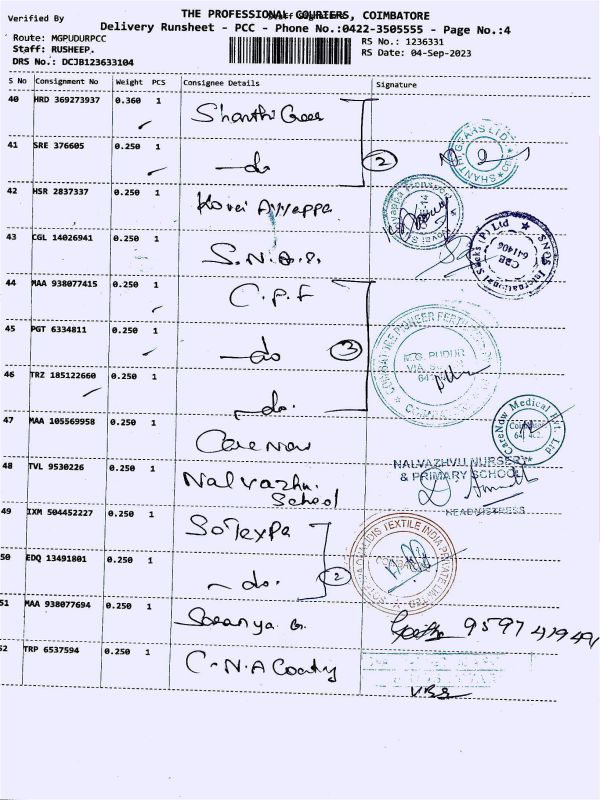 Verified By
THE PROFESSIONAL COURIERS, COIMBATORE
Delivery Runsheet - PCC - Phone No.:0422-3505555 - Page No.:4
Route: MGPUDURPCC
Staff: RUSHEEP.
DRS No.: DCJB123633104
RS No.: 1236331
RS Date: 04-Sep-2023
S No Consignment No Weight PCS Consignee Details Signature
40 HRD 369273937 0.360 1 Shanthi Gear
41 SRE 376605 0.250 1 do 2
42 HSR 2837337 0.250 1 Kovai Ayyappa
43 CGL 14026941 0.250 1 S.N.Q.S.
44 MAA 938077415 0.250 1 C.P.F
45 PGT 6334811 0.250 1 do 3
46 TRZ 185122660 0.250 1 do.
47 MAA 105569958 0.250 1 Care Now
48 TVL 9530226 0.250 1 Nalvazhu. School
49 IXM 504452227 0.250 1 SoTexPa
50 EDQ 13491801 0.250 1 do. 2
51 MAA 938077694 0.250 1 Saranya. G. 9597
52 TRP 6537594 0.250 1 C.N.A
SHANTHI GEARS LTD.
SNQS International Socks (P) Ltd
CBE
641406
M.G. PUDUR
CareNow Medical Pvt. Ltd.
Coimbatore
NALVAZHVU NURSERY
& PRIMARY SCHOOL
HEADMISTRESS
TEXTILE INDIA PRIVATE LIMITED